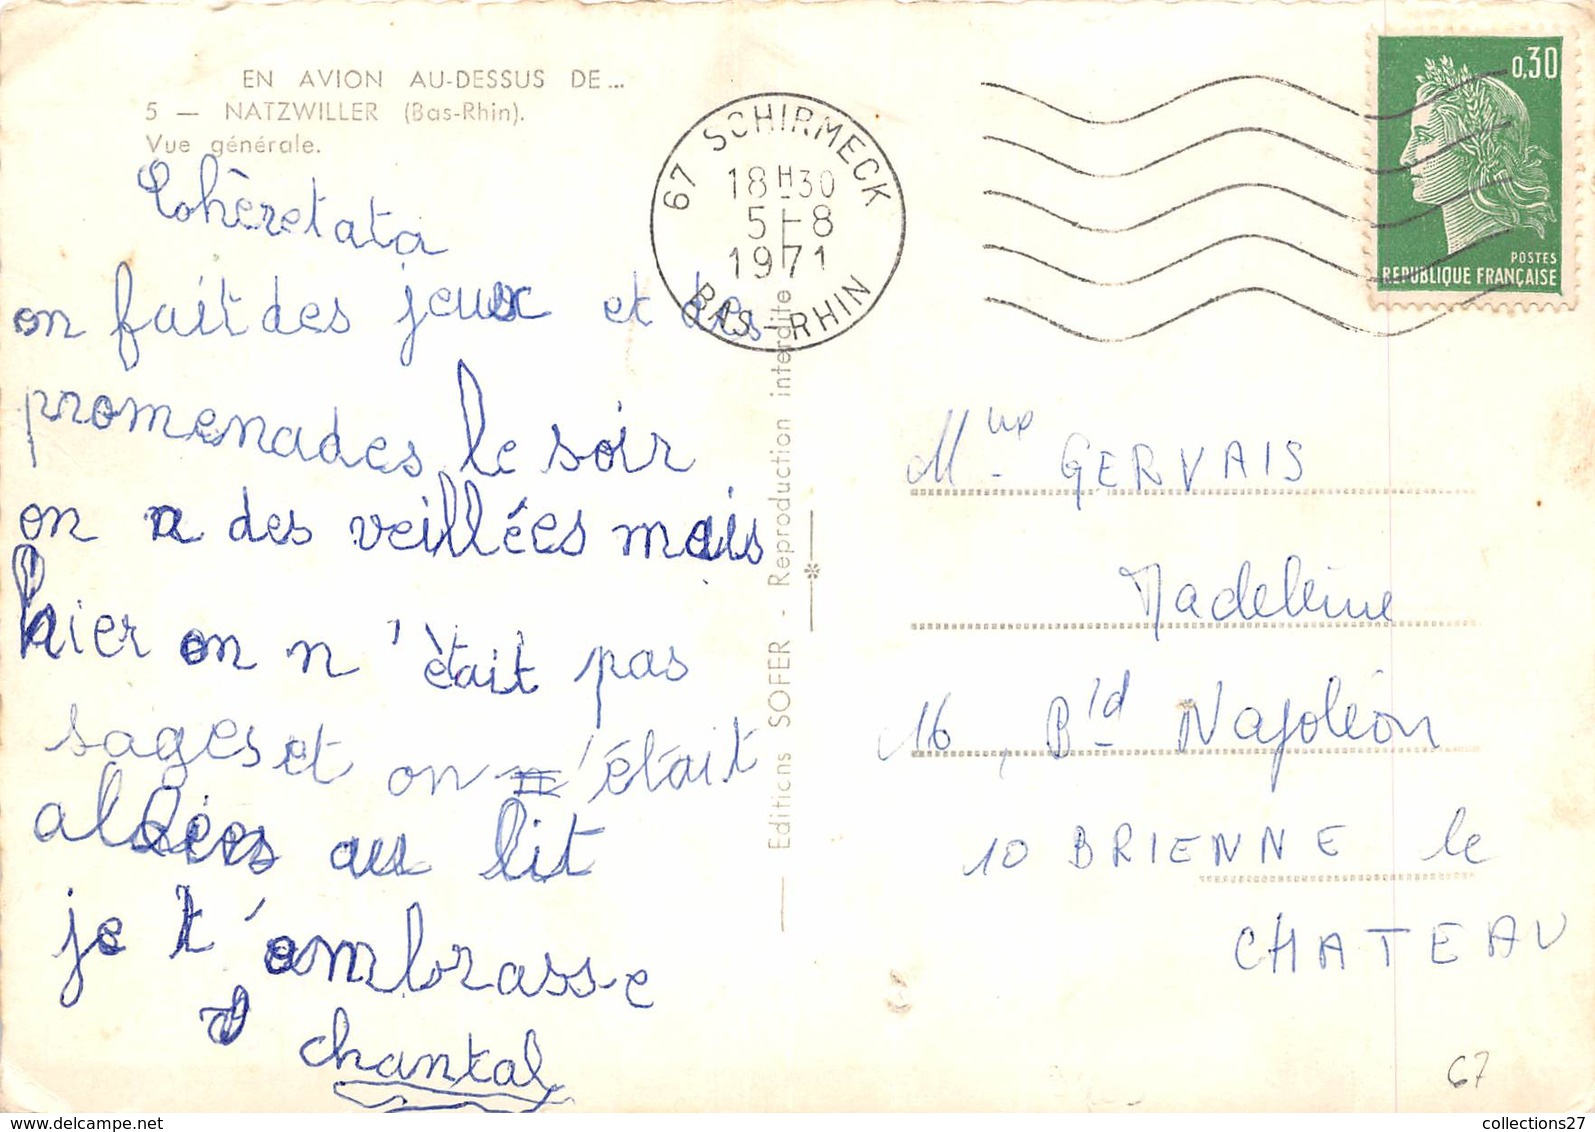 EN AVION AU-DESSUS DE...
5 — NATZWILLER (Bas-Rhin).
Vue générale.
Cohèretata
on fait des jeux et des
promenades le soir
on a des veillées mais
hier on n'était pas
sages et on n'était
alées au lit
je t'ambrasse
chantal
Editions SOFER - Reproduction interdite
67 SCHIRMECK
18H30
5-8
1971
BAS-RHIN
0,30
POSTES
REPUBLIQUE FRANÇAISE
Mlle GERVAIS
Madeleine
16, Bld Napoléon
10 BRIENNE le
CHATEAU
67
collections27